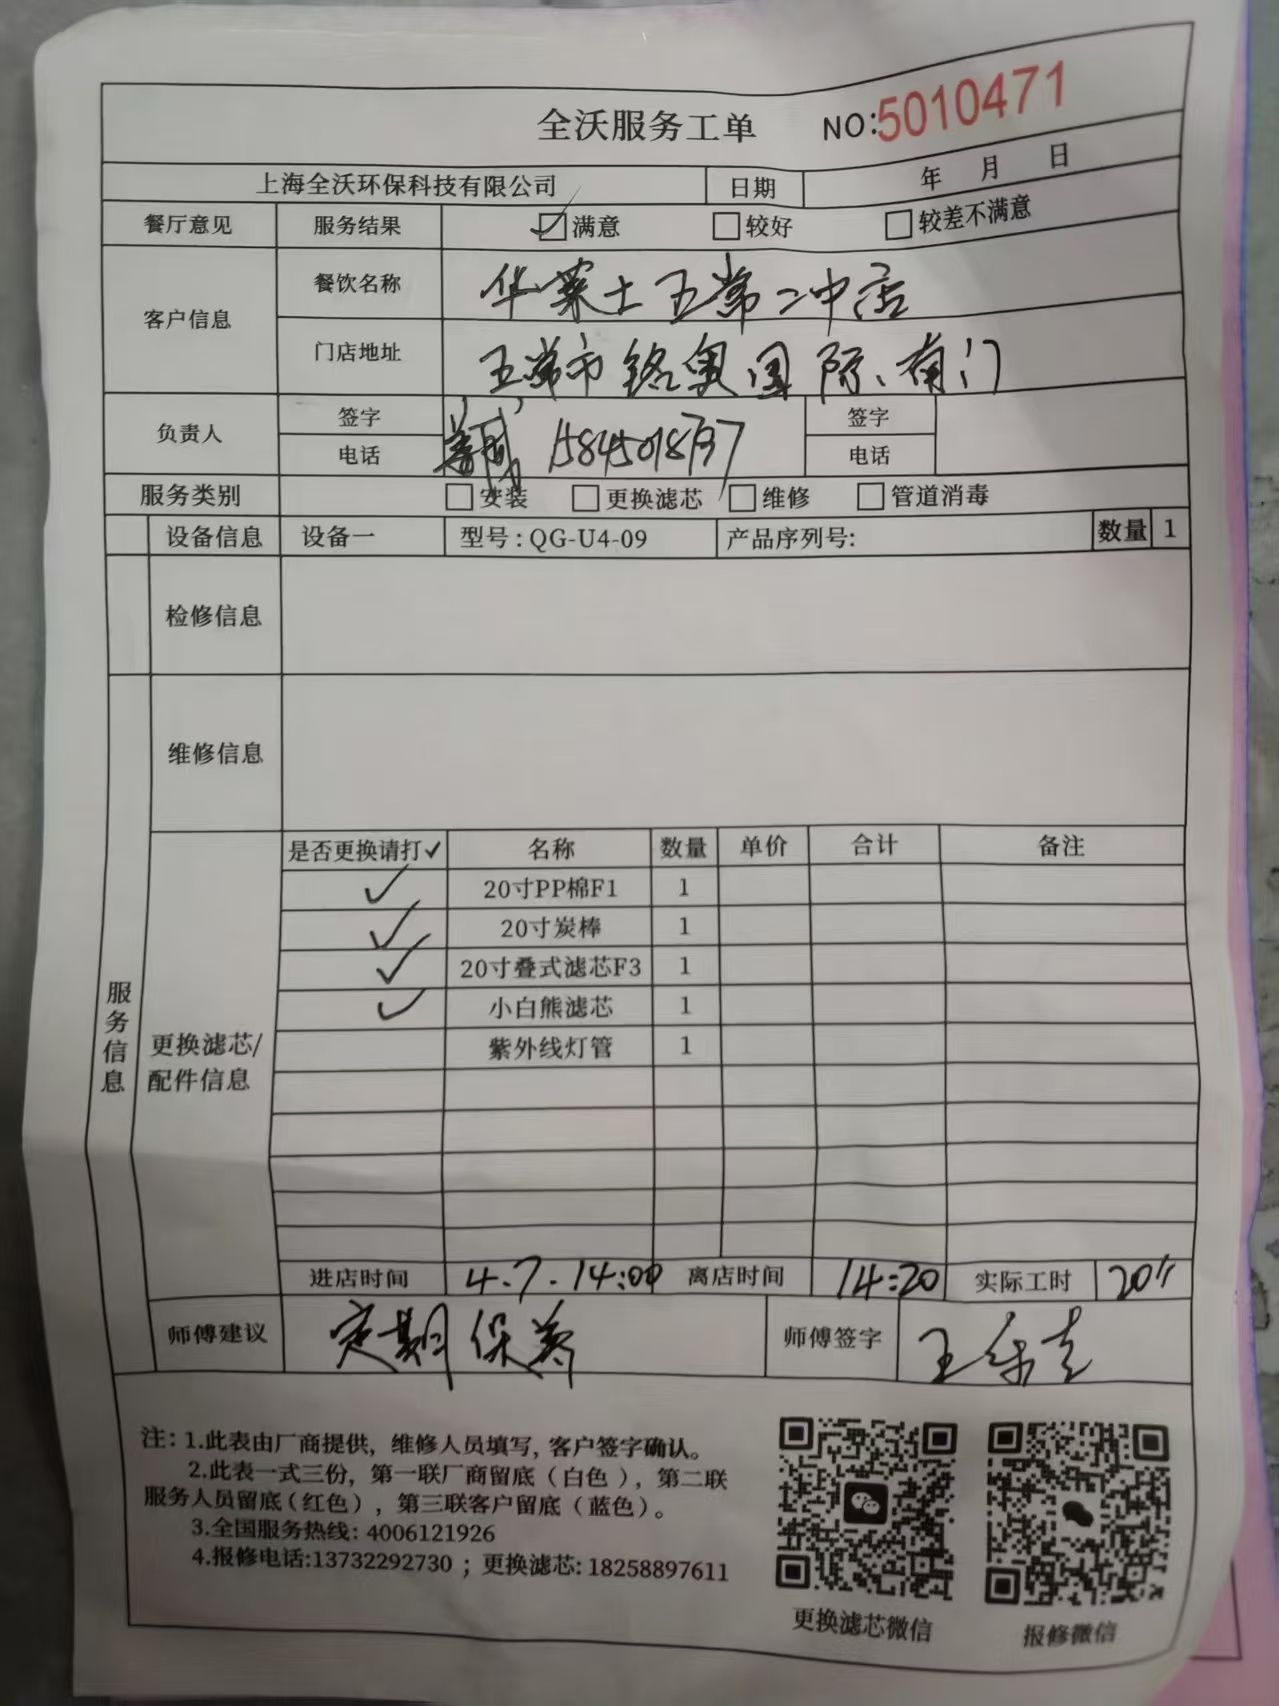 全沃服务工单 NO:5010471
上海全沃环保科技有限公司 日期 年 月 日
餐厅意见 服务结果 ☑满意 □较好 □较差不满意
客户信息 餐饮名称 华莱士五常二中店
门店地址 五常市铭奥国际、南门
负责人 签字 签字
电话 电话
服务类别 □安装 □更换滤芯 □维修 □管道消毒
设备信息 设备一 型号:QG-U4-09 产品序列号: 数量 1
检修信息
维修信息
服务信息
更换滤芯/
配件信息
是否更换请打✓ 名称 数量 单价 合计 备注
✓ 20寸PP棉F1 1
✓ 20寸炭棒 1
✓ 20寸叠式滤芯F3 1
✓ 小白熊滤芯 1
紫外线灯管 1
进店时间 4.7.14:00 离店时间 14:20 实际工时
师傅建议 定期保养 师傅签字
注:1.此表由厂商提供,维修人员填写,客户签字确认。
2.此表一式三份,第一联厂商留底(白色),第二联
服务人员留底(红色),第三联客户留底(蓝色)。
3.全国服务热线: 4006121926
4.报修电话:13732292730 ; 更换滤芯: 18258897611
更换滤芯微信 报修微信